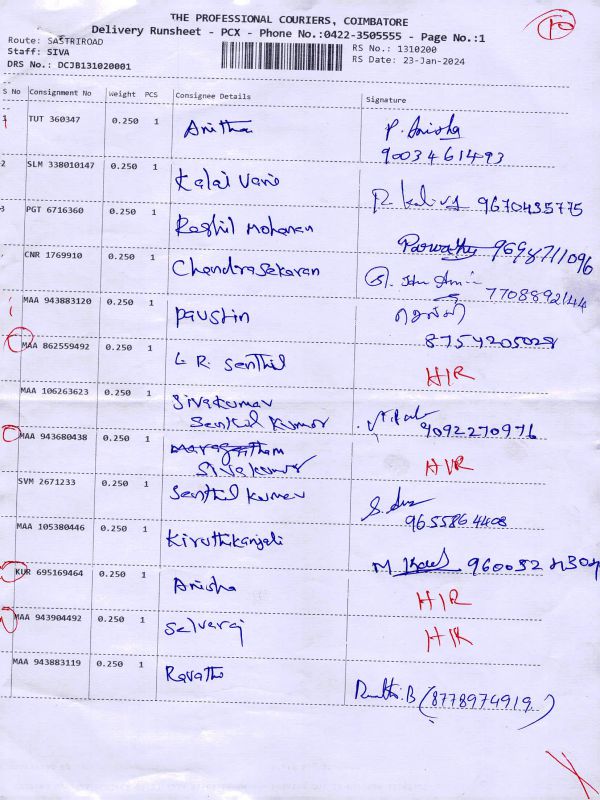 THE PROFESSIONAL COURIERS, COIMBATORE
Delivery Runsheet - PCX - Phone No.:0422-3505555 - Page No.:1
Route: SASTRIROAD
Staff: SIVA
DRS No.: DCJB131020001
RS No.: 1310200
RS Date: 23-Jan-2024
10
S No Consignment No Weight PCS Consignee Details Signature
1 TUT 360347 0.250 1 Anitha P. Anisha
9003461493
2 SLM 338010147 0.250 1 Kalai Vani 9670435775
3 PGT 6716360 0.250 1 Rashil Mohanan Parwathy 9698711096
CNR 1769910 0.250 1 Chandrasekaran
7708892144
MAA 943883120 0.250 1 Paustin
8754205028
MAA 862559492 0.250 1 L R. Senthil HIR
MAA 106263623 0.250 1 Sivakumar
Senthil Kumar 9092270976
MAA 943680438 0.250 1 HIR
Sivakumar
SVM 2671233 0.250 1 Senthil Kumar
9655864408
MAA 105380446 0.250 1 Kiruthikanjali M
KUR 695169464 0.250 1 Anisha HIR
MAA 943904492 0.250 1 Selvaraj HIR
MAA 943883119 0.250 1 Ravathi (8778974919)